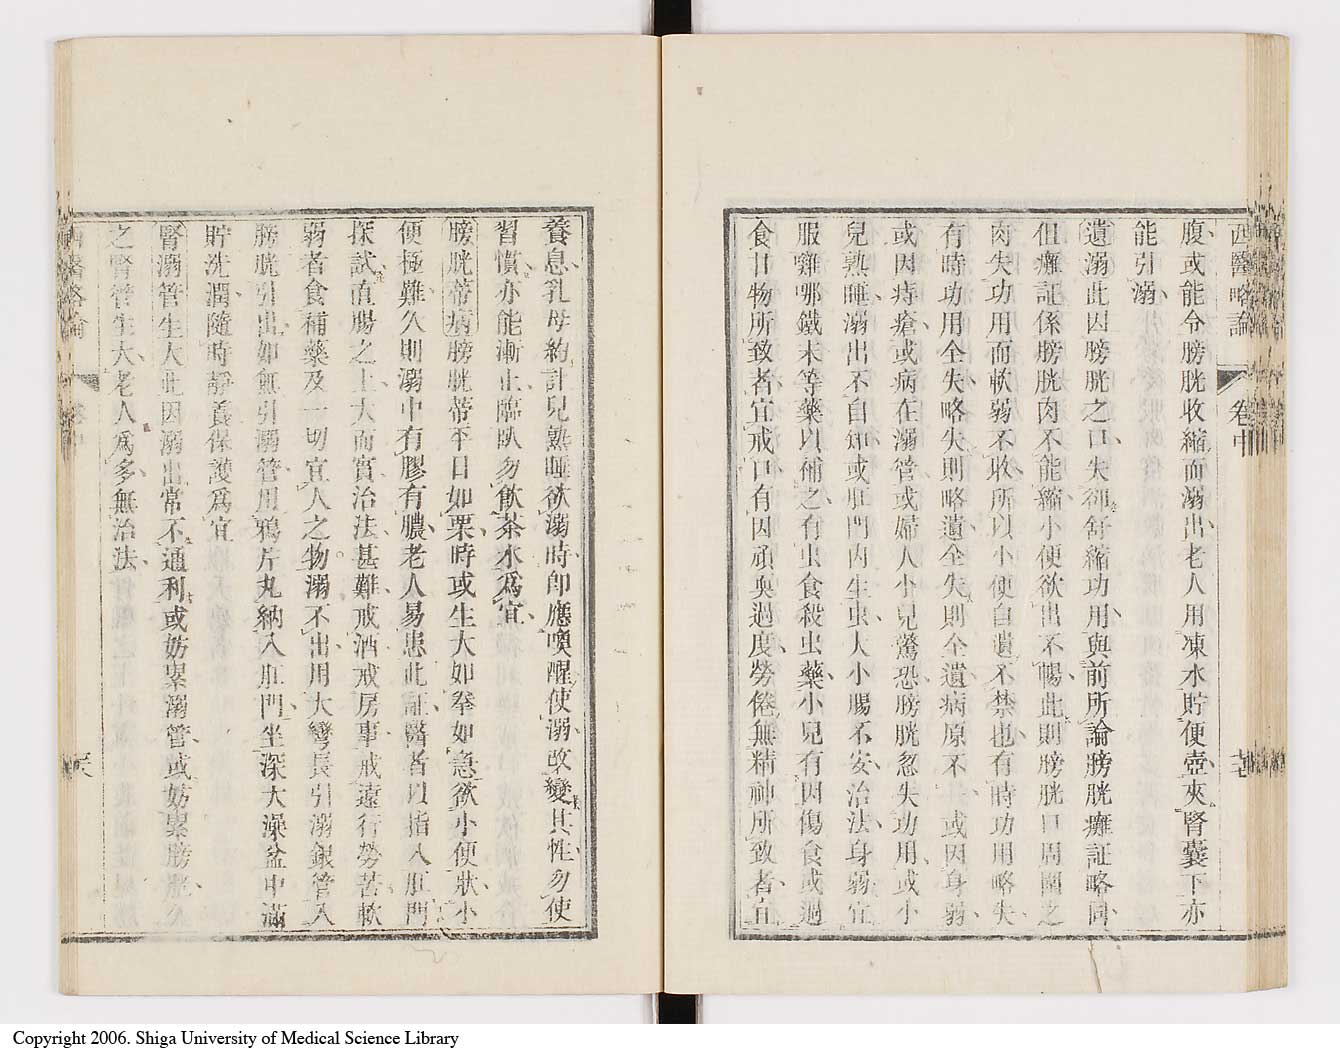 西醫略論 卷中
腹或能令膀胱收縮而溺出老人用凍水貯便壺夾腎囊下亦
能引溺
遺溺此因膀胱之口失卻舒縮功用與前所論膀胱癱証略同
但癱証係膀胱肉不能縮小便欲出不暢此則膀胱口周圍之
肉失功用而軟弱不收所以小便自遺不禁也有時功用略失
有時功用全失略失則略遺全失則全遺病原不一或因身弱
或因痔瘡或病在溺管或婦人小兒驚恐膀胱忽失功用或小
兒熟睡溺出不自知或肛門內生虫大小腸不安治法身弱宜
服雞哪鐵末等藥以補之有虫食殺虫藥小兒有因傷食或過
食甘物所致者宜戒口有因頑臾過度勞倦無精神所致者宜
養息乳母約計兒熟睡欲溺時即應喚醒使溺改變其性勿使
習慣亦能漸止臨臥勿飲茶水爲宜
膀胱蒂病膀胱蒂平日如栗時或生大如拳如急欲小便狀小
便極難久則溺中有膠有膿老人易患此証醫者以指入肛門
探試直腸之上大而實治法甚難戒酒戒房事戒遠行勞苦軟
弱者食補藥及一切宜人之物溺不出用大彎長引溺銀管入
膀胱引出如無引溺管用鴉片丸納入肛門坐深大澡盆中滿
貯洗潤隨時靜養保護爲宜
腎溺管生大此因溺出常不通利或妨累溺管或妨累膀胱久
之腎管生大老人爲多無治法
西醫略論